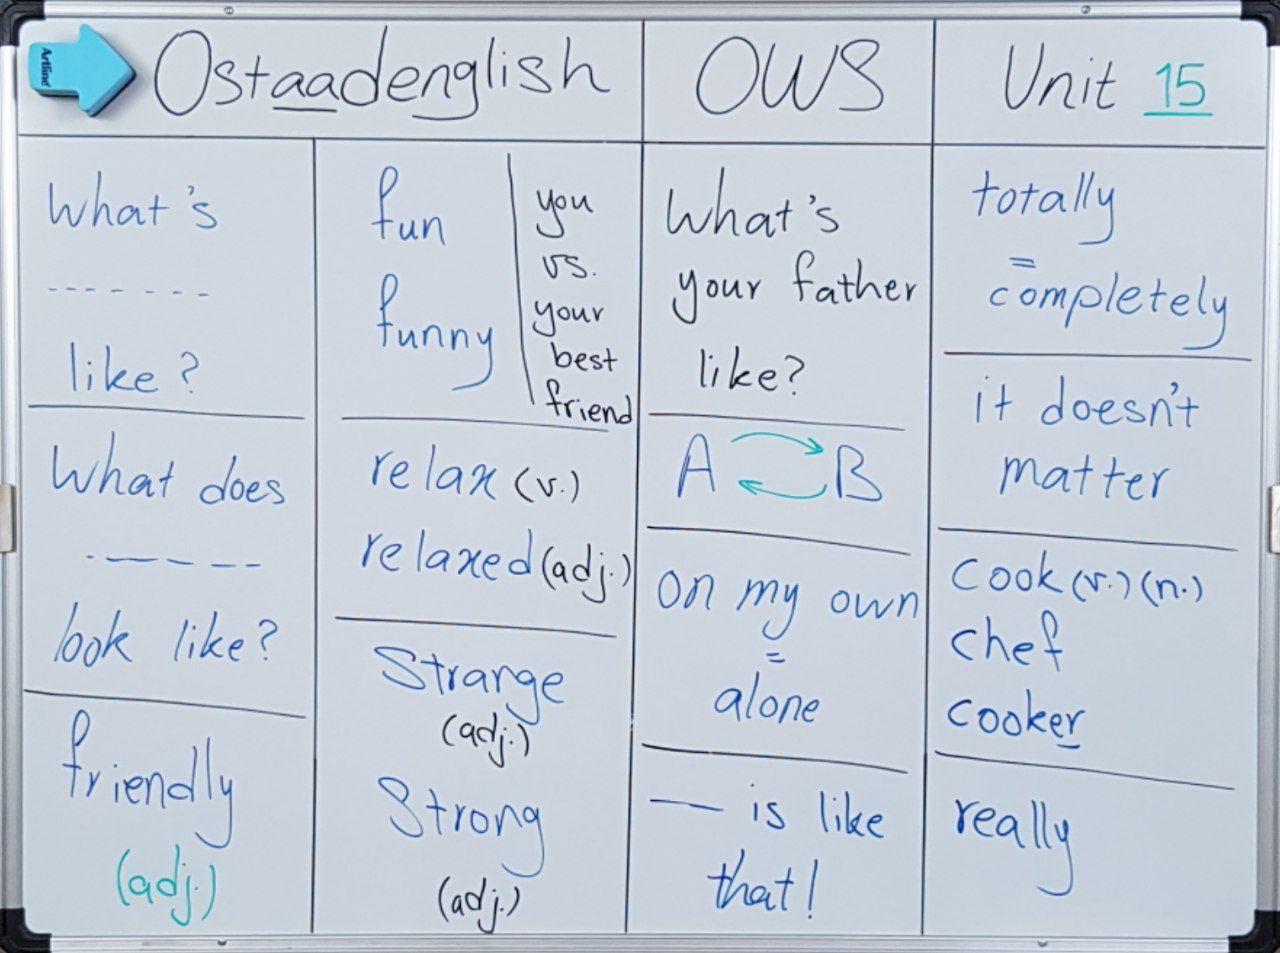 Artline
Ostaadenglish
OWS
Unit 15
What's
-------
like?
What does
-----
look like?
friendly
(adj.)
fun
funny
you
vs.
your
best
friend
relax (v.)
relaxed (adj.)
Strange
(adj.)
Strong
(adj.)
What's
your father
like?
A B
on my own
=
alone
— is like
that!
totally
=
completely
it doesn't
matter
cook (v.) (n.)
chef
cooker
really